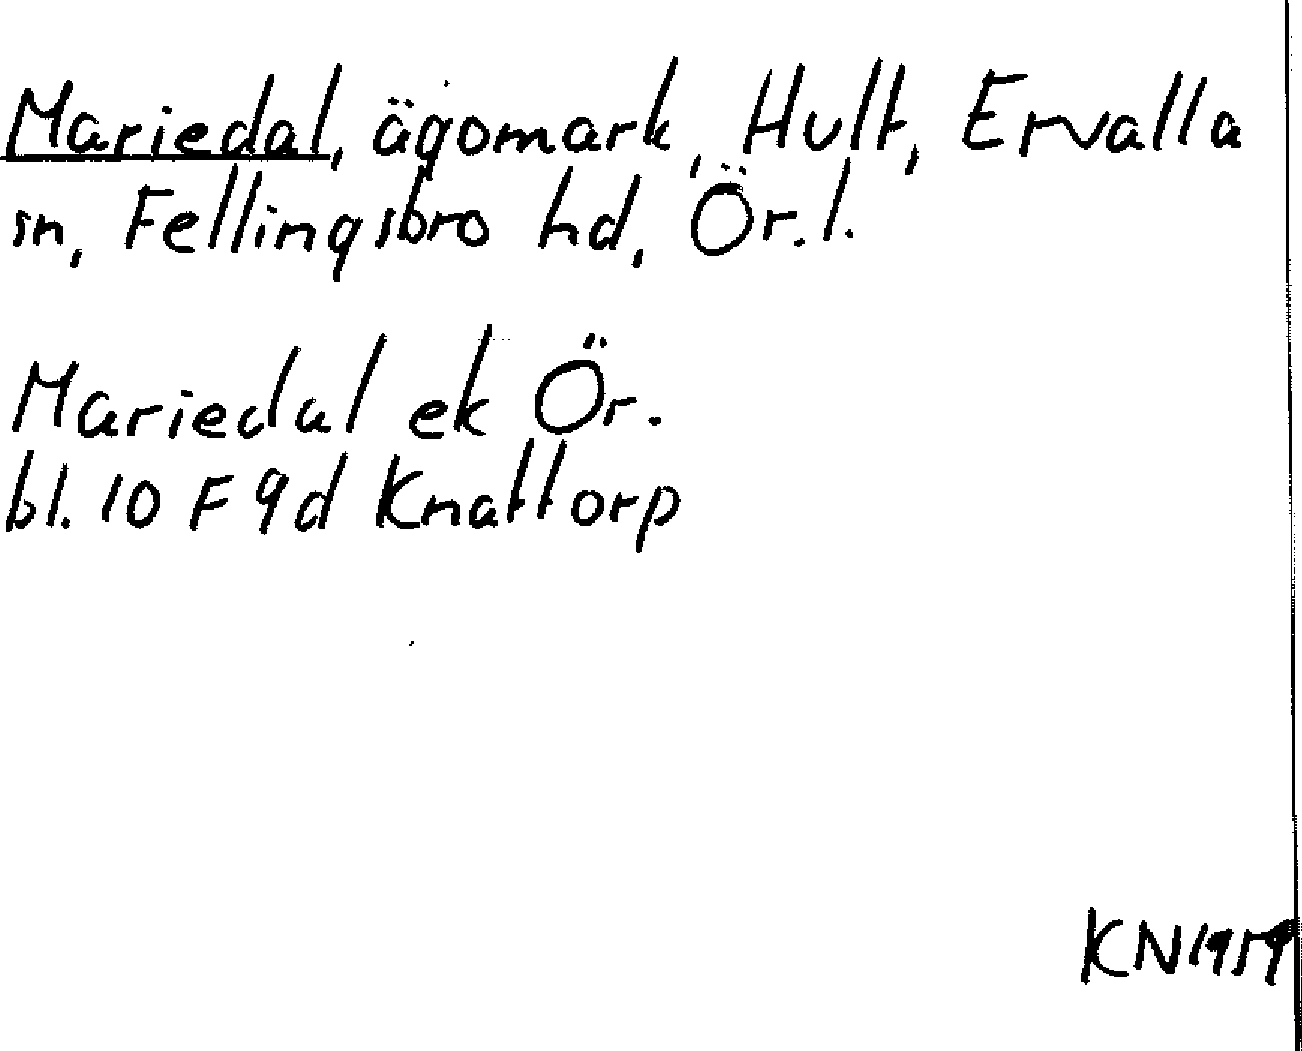 Mariedal, ägomark, Hult, Ervalla
sn, Fellingsbro hd, Ör.l.
Mariedal ek Ör.
bl. 10 F 9d Knattorp
KN 1959